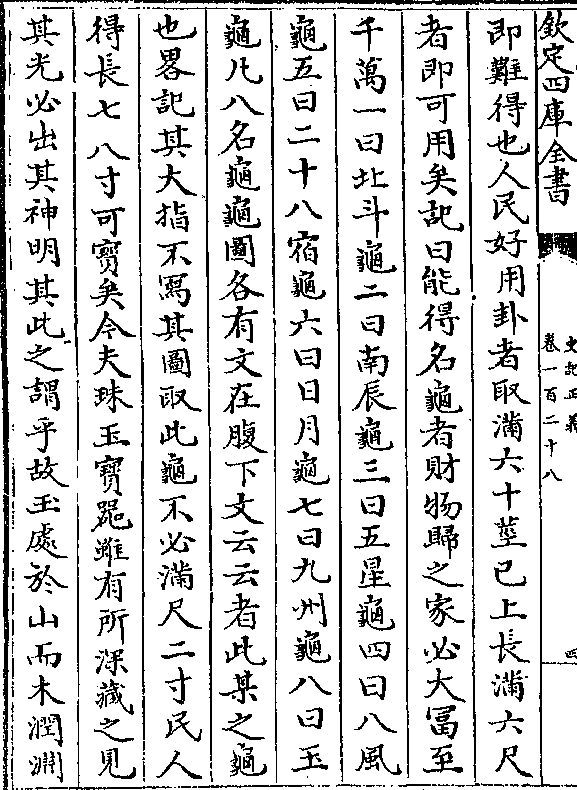 欽定四庫全書
史記正義
卷一百二十八
四
即難得也人民好用卦者取滿六十莖已上長滿六尺
者即可用矣記曰能得名龜者財物歸之家必大富至
千萬一曰北斗龜二曰南辰龜三曰五星龜四曰八風
龜五曰二十八宿龜六曰日月龜七曰九州龜八曰玉
龜凡八名龜龜圖各有文在腹下文云云者此某之龜
也畧記其大指不寫其圖取此龜不必滿尺二寸民人
得長七八寸可寶矣今夫珠玉寶器雖有所深藏之見
其光必出其神明其此之謂乎故玉處於山而木潤淵